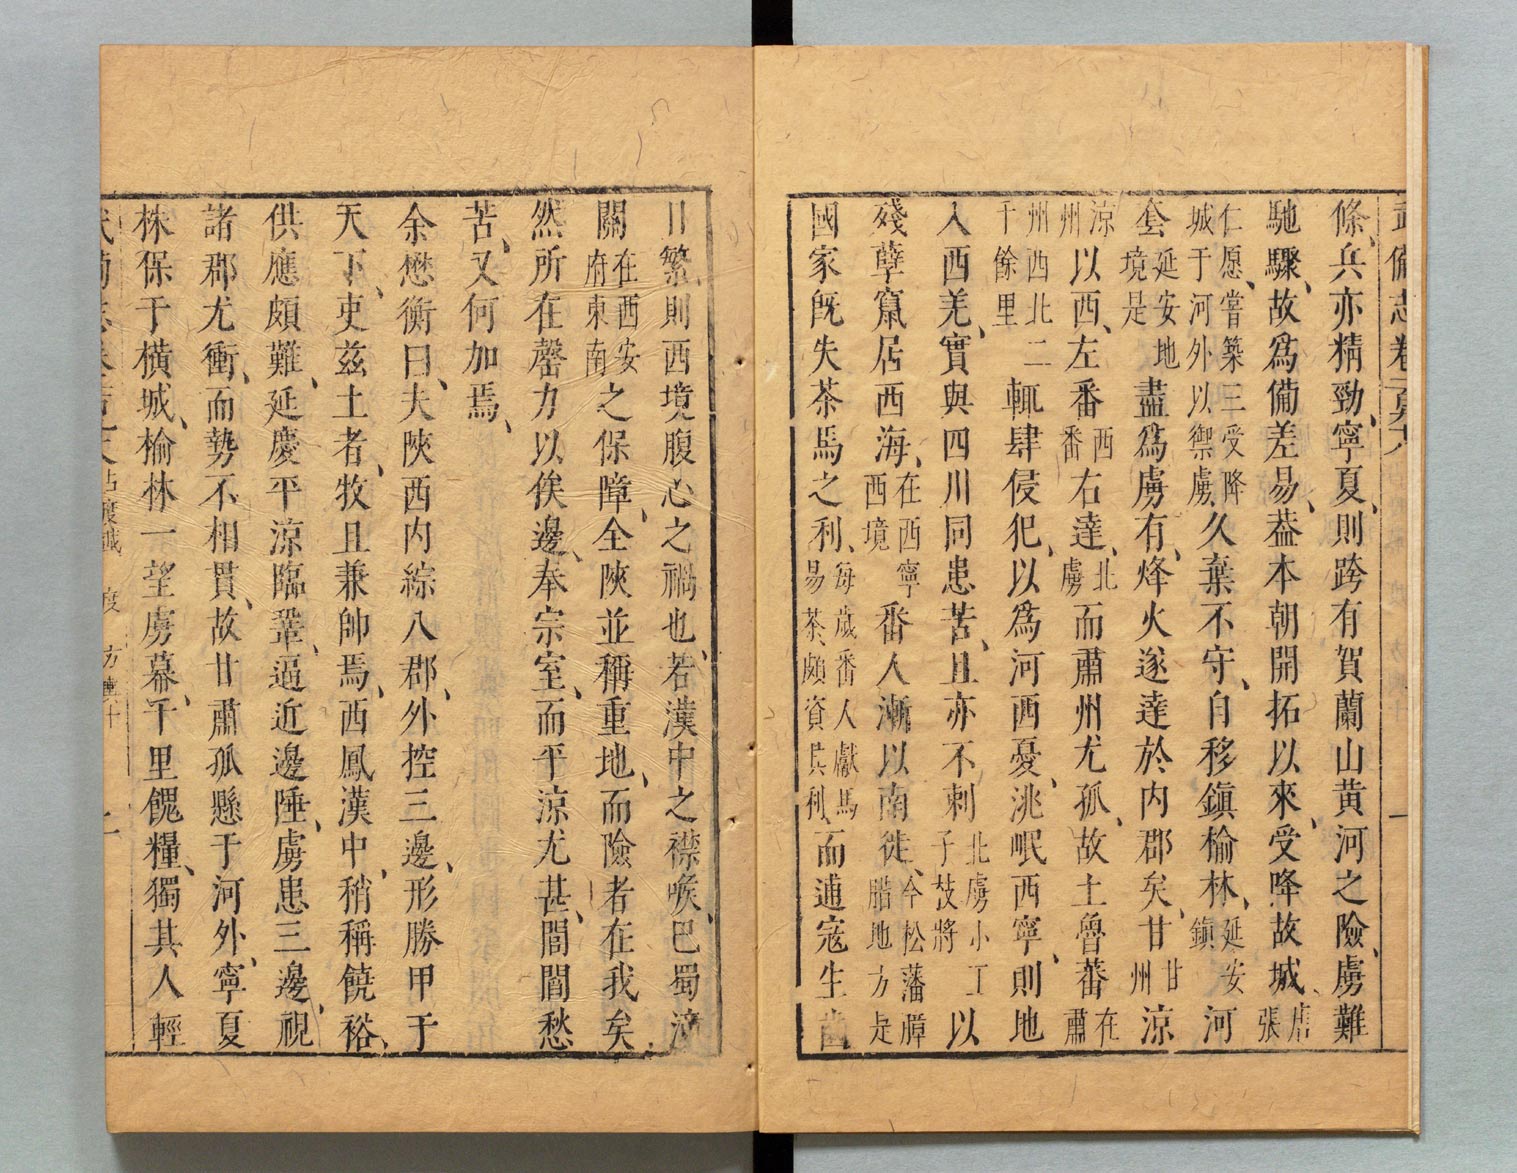 武備志卷
條、兵亦精勁、寧夏、則跨有賀蘭山黃河之險、虜難
馳驟、故爲備差易、葢本朝開拓以來、受降故城、唐張
仁愿、嘗築三受降城于河外以禦虜久棄不守、自移鎮榆林、延安鎮河
套延安地境是盡爲虜有、烽火遂達於內郡矣、甘甘州涼
涼州以西、左番西番右達、北虜而肅州尤孤、故土魯蕃在肅
州西北二千餘里輒肆侵犯、以爲河西憂、洮岷西寧、則地
入西羌、實與四川同患苦、且亦不剌北虜小丁子枝將以
殘孽竄居西海、在西寧西境番人漸以南徙、今松藩障臘地方是
國家旣失茶馬之利、每歲番人獻馬易茶頗資其利而逋寇生齒
日繁、則西境腹心之禍也、若漢中之襟喉、巴蜀潼
關在西安府東南之保障、全陝並稱重地、而險者在我矣、
然所在罄力以俟邊、奉宗室、而平涼尤甚、閭閻愁
苦、又何加焉、
余懋衡曰、夫陝西內綜八郡、外控三邊、形勝甲于
天下、吏茲土者、牧且兼帥焉、西鳳漢中、稍稱饒裕、
供應頗難、延慶平涼臨鞏、逼近邊陲、虜患三邊、視
諸郡尤衝、而勢不相貫、故甘肅孤懸于河外、寧夏
株保于橫城、榆林一望虜幕、千里餽糧、獨其人輕
占度載 度 方輿十